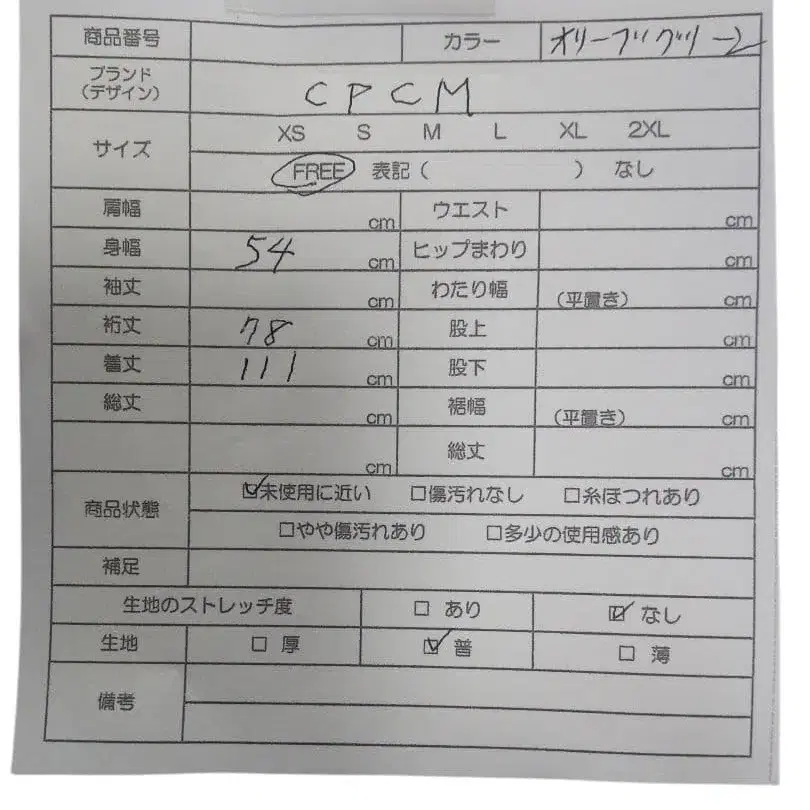 商品番号 カラー オリーブグリーン
ブランド
（デザイン） CPCM
サイズ XS S M L XL 2XL
FREE 表記（ ） なし
肩幅 cm ウエスト cm
身幅 54 cm ヒップまわり cm
袖丈 cm わたり幅 （平置き） cm
裄丈 78 cm 股上 cm
着丈 111 cm 股下 cm
総丈 cm 裾幅 （平置き） cm
cm 総丈 cm
商品状態 ☑未使用に近い ☐傷汚れなし ☐糸ほつれあり
☐やや傷汚れあり ☐多少の使用感あり
補足
生地のストレッチ度 ☐ あり ☑ なし
生地 ☐ 厚 ☑ 普 ☐ 薄
備考